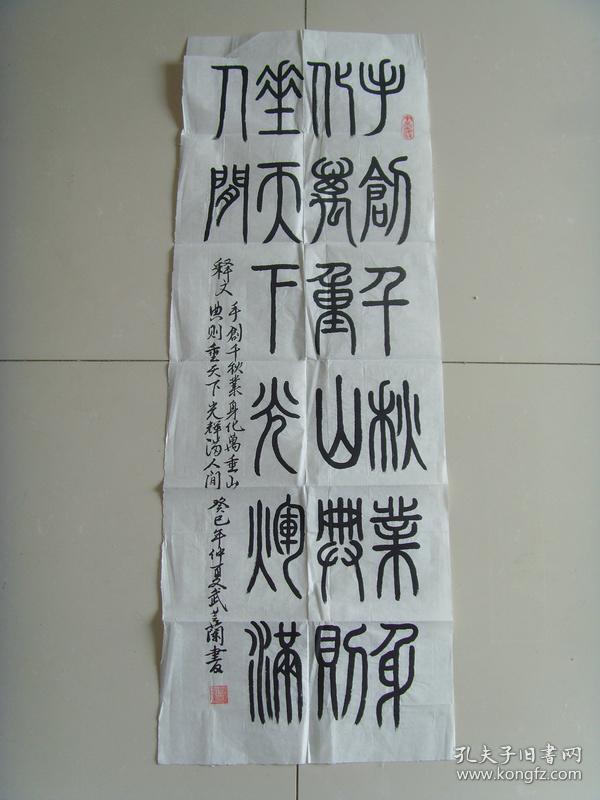 手創千秋業身
化萬重山典則
垂天下光煇滿
人間
释文
手創千秋業身化萬重山
典则垂天下光辉满人间
癸巳年仲夏武芝蘭書
孔夫子旧书网
www.kongfz.com